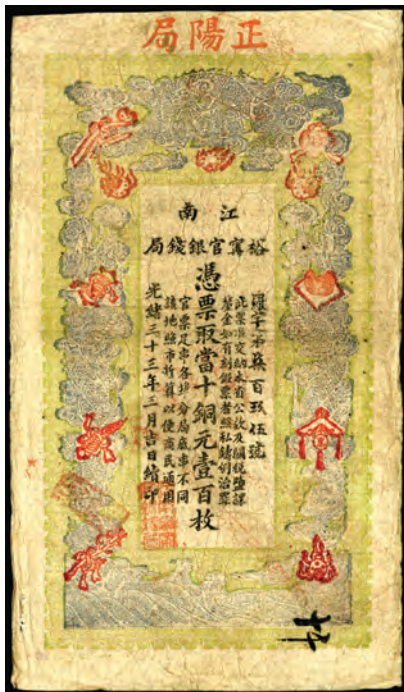 正陽局
江南
裕寧官銀錢局
字第柒百玖伍號
此票准完納本省公款及關稅鹽課
釐金如有刻假票者照私鑄例治罪
憑票取當十銅元壹百枚
官票足串各埠分局底串不同
該地照市折算以便商民通用
光緒三十三年三月吉日續印